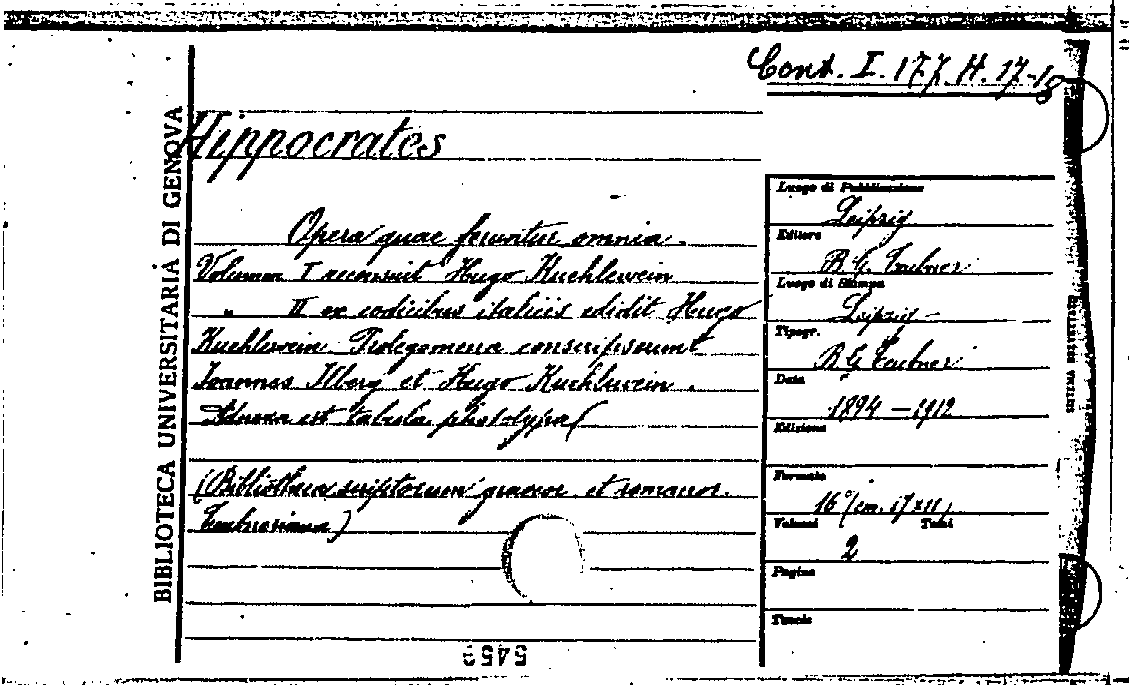 Cont. I. 177. H. 17-18
BIBLIOTECA UNIVERSITARIA DI GENOVA
Hippocrates
Opera quae feruntur omnia.
Volumen I recensuit Hugo Kuehlewein
" II ex codicibus italicis edidit Hugo
Kuehlewein Prolegomena conscripserunt
Joannes Ilberg et Hugo Kuehlewein.
Adnexa est tabula phototypa
(Bibliotheca scriptorum graecor et romanor.
Teubneriana)
Luogo di Pubblicazione
Leipzig
Editore
B. G. Teubner
Luogo di Stampa
Leipzig
Tipogr.
B G Teubner
Data
1894 - 1912
Edizione
Formato
16° (cm. 17x11)
Volumi Tomi
2
Pagine
Tavole
5459